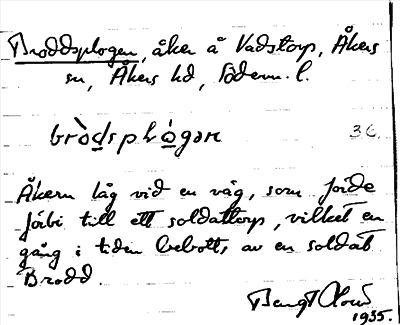 Broddsplogen, åker å Vadstorp, Åkers
sn, Åkers hd, Söderm. l.
bròdsplógan
36.
Åkern låg vid en väg, som förde
förbi till ett soldattorp, vilket en
gång i tiden bebotts av en soldat
Brodd.
Bengt
1935.